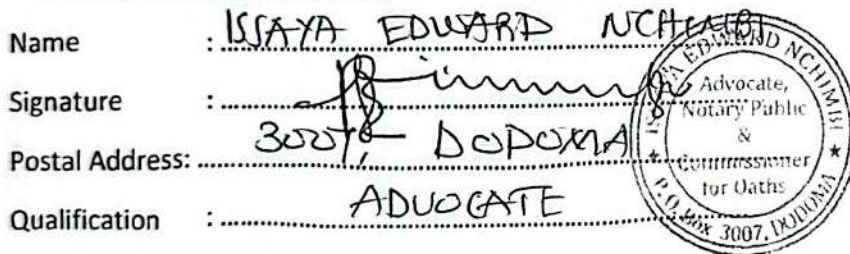 Name : ISSAYA EDWARD NCHIMBI
Signature :
Postal Address: 3007, DODOMA
Qualification : ADVOCATE
ISSAYA EDWARD NCHIMBI
Advocate,
Notary Public
&
Commissioner
for Oaths
★ P. O. Box 3007, DODOMA ★